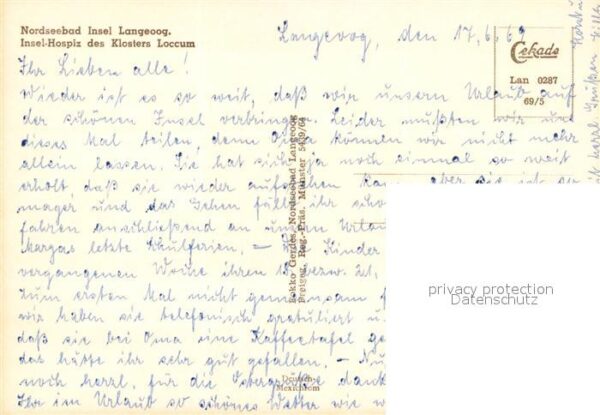 Nordseebad Insel Langeoog.
Insel-Hospiz des Klosters Loccum
Langeoog, den 17.6.69
Cekade
Lan 0287
69/5
Ihr Lieben alle!
Wieder ist es so weit, daß wir unsern Urlaub auf
der schönen Insel verbringen. Leider mußten wir uns
dieses Mal teilen, denn Oma können wir nicht mehr
allein lassen. Sie hat sich ja noch einmal so weit
erholt daß sie wieder aufstehen kann, aber sie ist so
mager und das Gehen fällt ihr schw
fahren anschließend an unsern Urlau
Margas letzte Schulferien. – Kinder
vergangenen Woche ihren 18. bezw. 21.
zum ersten Mal nicht gemeinsam f
wir haben sie telefonisch gratuliert u
daß sie bei Oma eine Kaffeetafel ge
das hätte ihr sehr gut gefallen. – Nu
noch herzl. für die Ostergrüße dank
Ihr im Urlaub so schönes Wetter wie w
Gerdes, Nordseebad Langeoog
Freigeg. Reg.-Präs. Münster 5439/64
Mexichrom
herzl. Grüßen
privacy protection
Datenschutz